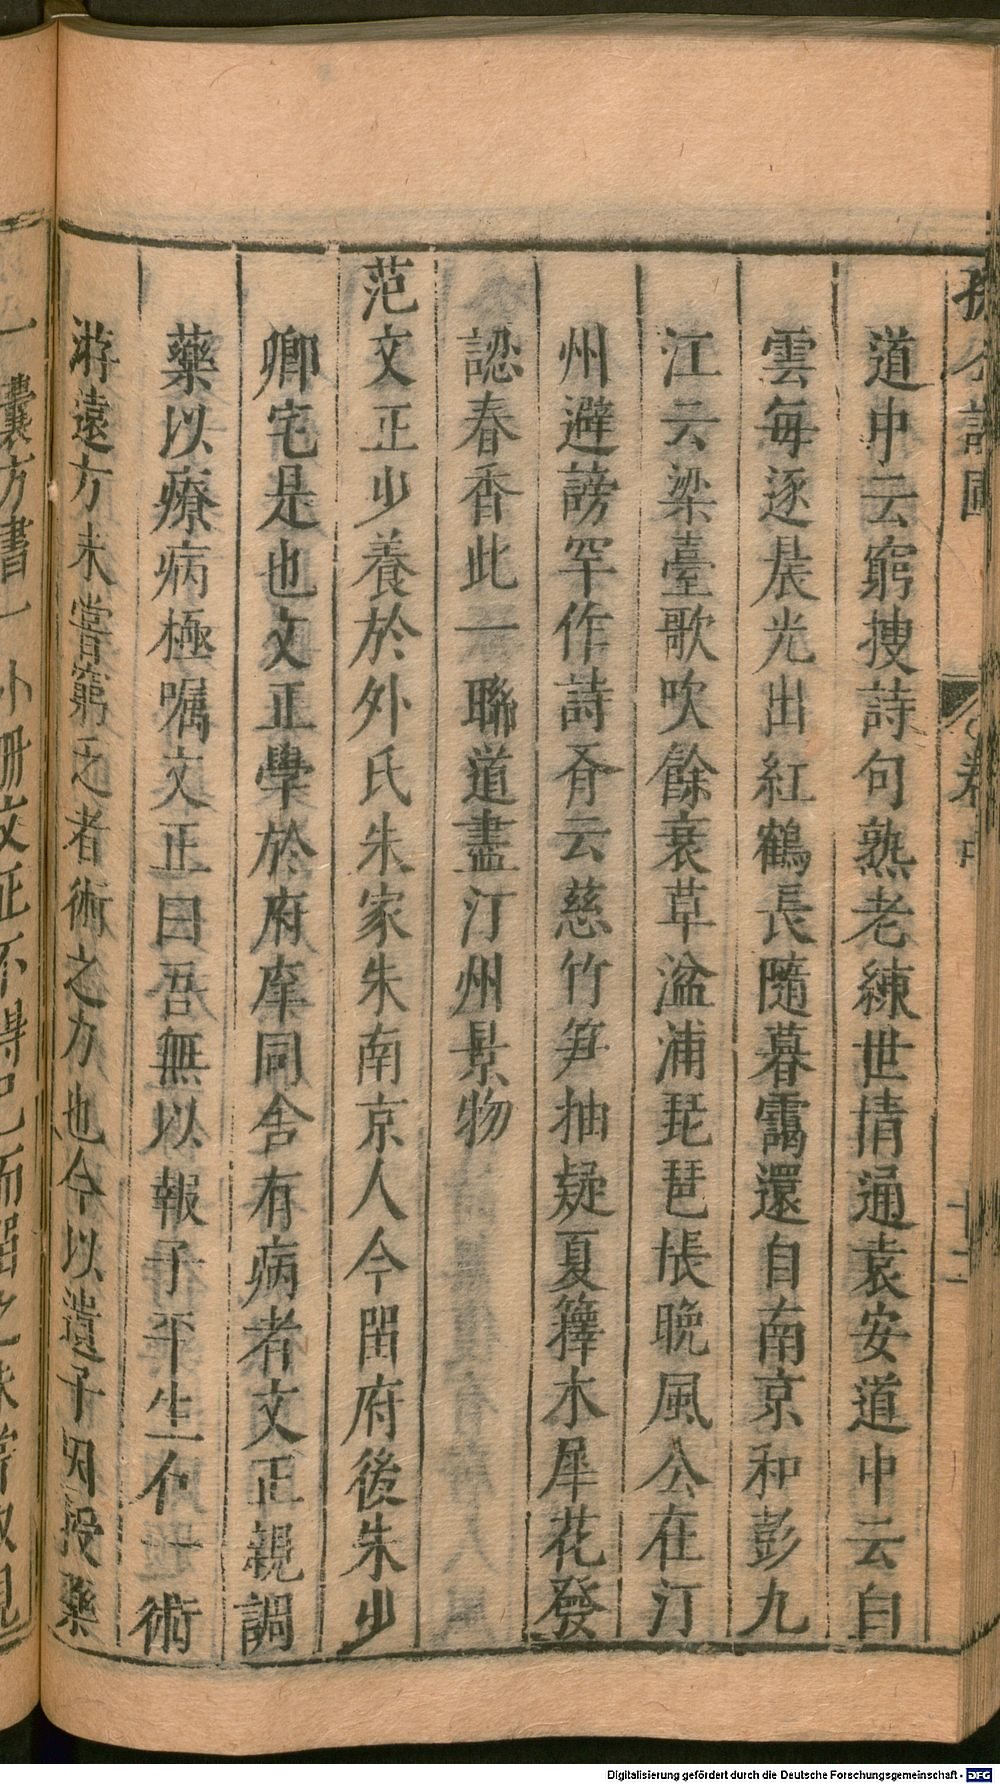 孫公談圃
卷中
十二
道中云窮搜詩句熟老練世情通袁安道中云白
雲每逐晨光出紅鶴長隨暮靄還自南京和彭九
江云梁臺歌吹餘衰草湓浦琵琶悵晚風公在汀
州避謗罕作詩有云慈竹笋抽疑夏籜木犀花發
認春香此一聯道盡汀州景物
范文正少養於外氏朱家朱南京人今留府後朱少
卿宅是也文正學於府庠同舍有病者文正親調
藥以療病極囑文正曰吾無以報子平生有一術
游遠方未嘗窮乏者術之力也今以遺子因授藥
一囊方書一小冊文正不得已而留之未嘗取視
Digitalisierung gefördert durch die Deutsche Forschungsgemeinschaft - DFG